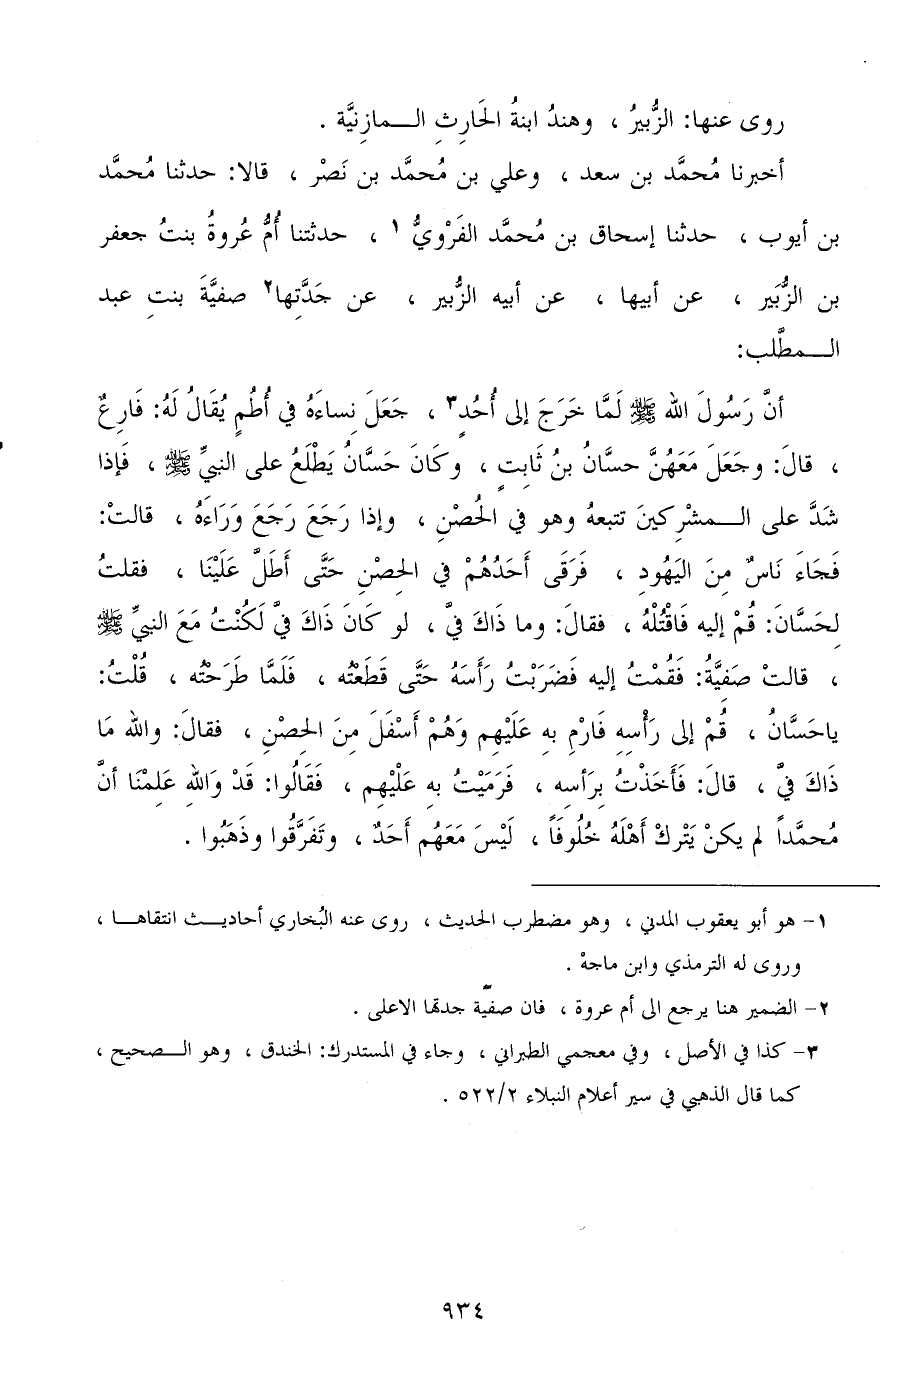 روى عنها: الزُّبيرُ ، وهندُ ابنةُ الحَارِثِ الـمازِنيَّة .
أخبرنا مُحمَّد بن سعد ، وعلي بن مُحمَّد بن نَصْر ، قالا: حدثنا مُحمَّد
بن أيوب ، حدثنا إسحاق بن مُحمَّد الفَرْويُّ ١ ، حدثتنا أُمُّ عُروةُ بنتُ جعفر
بن الزُّبَير ، عن أبيها ، عن أبيه الزُّبير ، عن جَدَّتِها٢ صفيَّةَ بنتِ عبد
الـمطَّلب:
أنَّ رَسُولَ الله ﷺ لَمَّا خَرَجَ إلى أُحُدٍ٣ ، جَعَلَ نِساءَهُ في أُطُمٍ يُقَالُ لَهُ: فَارِعٌ
، قالَ: وجَعَلَ مَعَهُنَّ حسَّانُ بنُ ثَابتٍ ، وكَانَ حَسَّانُ يَطْلَعُ على النبيِّ ﷺ ، فَإذا
شَدَّ على الـمشْرِكينَ تتبعهُ وهو في الحُصْنِ ، وإذا رَجَعَ رَجَعَ وَرَاءَهُ ، قالتْ:
فَجَاءَ نَاسٌ مِنَ اليَهُودِ ، فَرَقَى أَحَدُهُمْ في الحِصْنِ حَتَّى أَطَلَّ عَلَيْنَا ، فقلتُ
لِحَسَّانَ: قُمْ إليه فَاقْتُلْهُ ، فقالَ: وما ذَاكَ فيَّ ، لو كَانَ ذَاكَ فيَّ لَكُنْتُ مَعَ النبيِّ ﷺ
، قالتْ صَفيَّةُ: فَقُمْتُ إليه فَضَرَبْتُ رَأسَهُ حَتَّى قَطَعْتُه ، فَلَمَّا طَرَحْتُه ، قُلْتُ:
ياحَسَّانُ ، قُمْ إلى رَأْسِهِ فَارْمِ به عَلَيْهِم وَهُمْ أَسْفَلَ مِنَ الحِصْنِ ، فقالَ: والله مَا
ذَاكَ فيَّ ، قالَ: فَأَخَذْتُ بِرَأسه ، فَرَمَيْتُ به عَلْيْهِم ، فَقَالُوا: قَدْ وَاللهِ عَلِمْنَا أنَّ
مُحمَّداً لم يكنْ يَتْركْ أَهْلَهُ خُلُوفَاً ، لَيْسَ مَعَهُم أَحَدٌ ، وتَفَرَّقُوا وذَهَبُوا .
١- هو أبو يعقوب المدني ، وهو مضطرب الحديث ، روى عنه البُخاري أحاديـث انتقاهـا ،
وروى له الترمذي وابن ماجهْ .
٢- الضمير هنا يرجع الى أم عروة ، فان صفيّة جدتها الاعلى .
٣- كذا في الأصل ، وفي معجمي الطبراني ، وجاء في المستدرك: الخندق ، وهو الـصحيح ،
كما قال الذهبي في سير أعلام النبلاء ٥٢٢/٢ .
٩٣٤